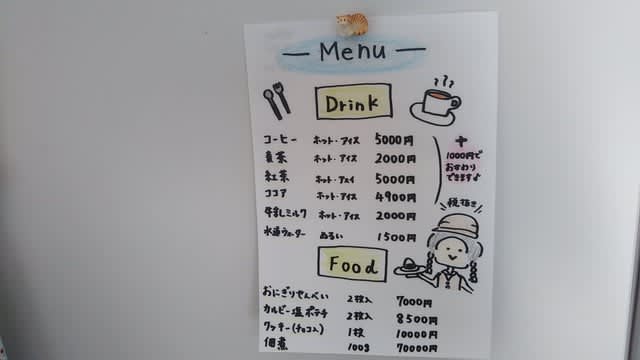 Menu
Drink
コーヒー ホット・アイス 5000円
麦茶 ホット・アイス 2000円
紅茶 ホット・アイス 5000円
ココア ホット・アイス 4900円
牛乳ミルク ホット・アイス 2000円
水道ウォーター ぬるい 1500円
+
1000円で
おかわり
できます♪
税抜き
Food
おにぎりせんべい 2枚入 7000円
カルビー塩ポテチ 2枚入 8500円
クッキー(チョコ入) 1枚 10000円
佃煮 100g 70000円